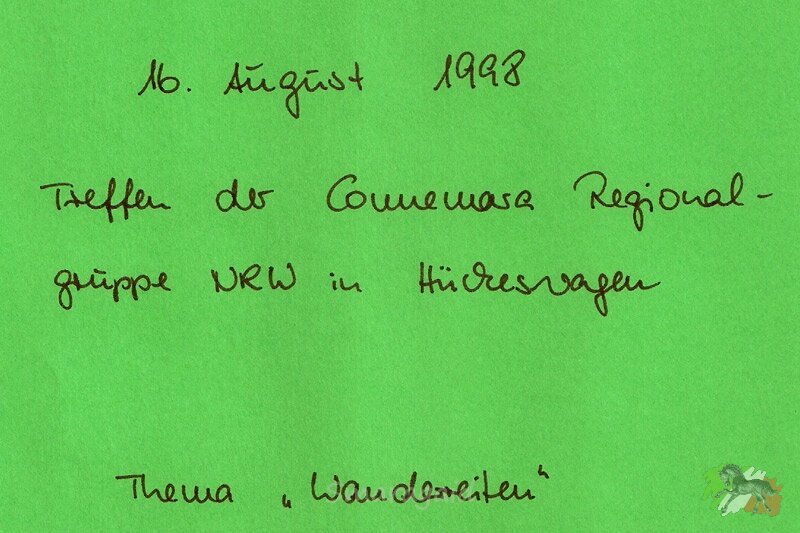 16. August 1998
Treffen der Connemara Regional-
gruppe NRW in Hückeswagen
Thema „Wanderreiten"